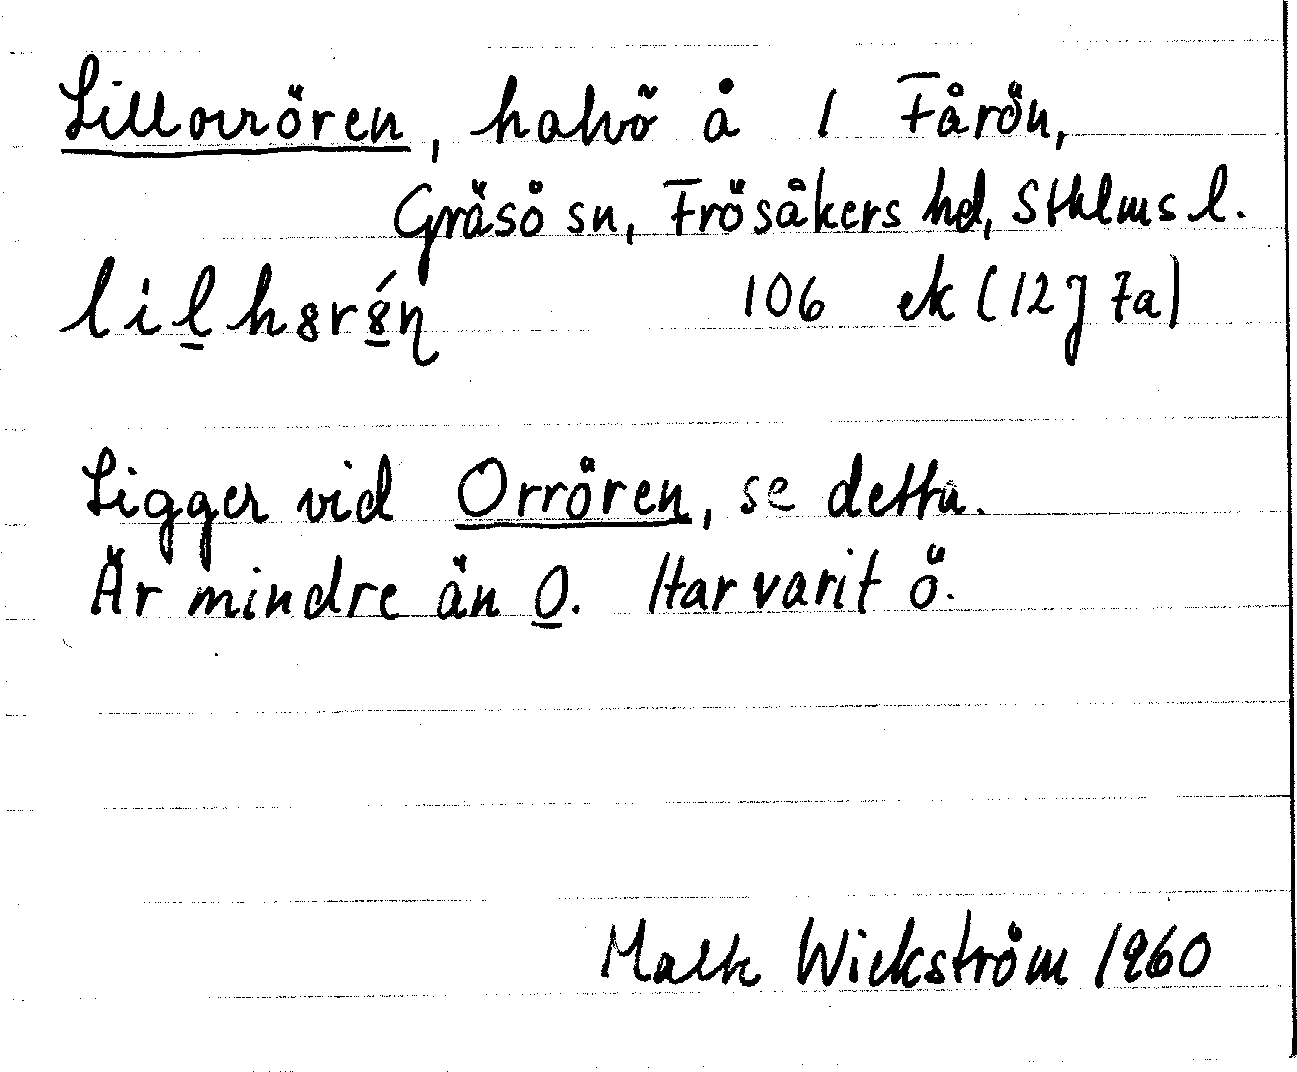 Lillorrören, halvö å 1 Fårön,
Gräsö sn, Frösåkers hd, Sthlms l.
106 ek (12J 7a)
Ligger vid Orrören, se detta.
Är mindre än O. Har varit ö.
Wickström 1960